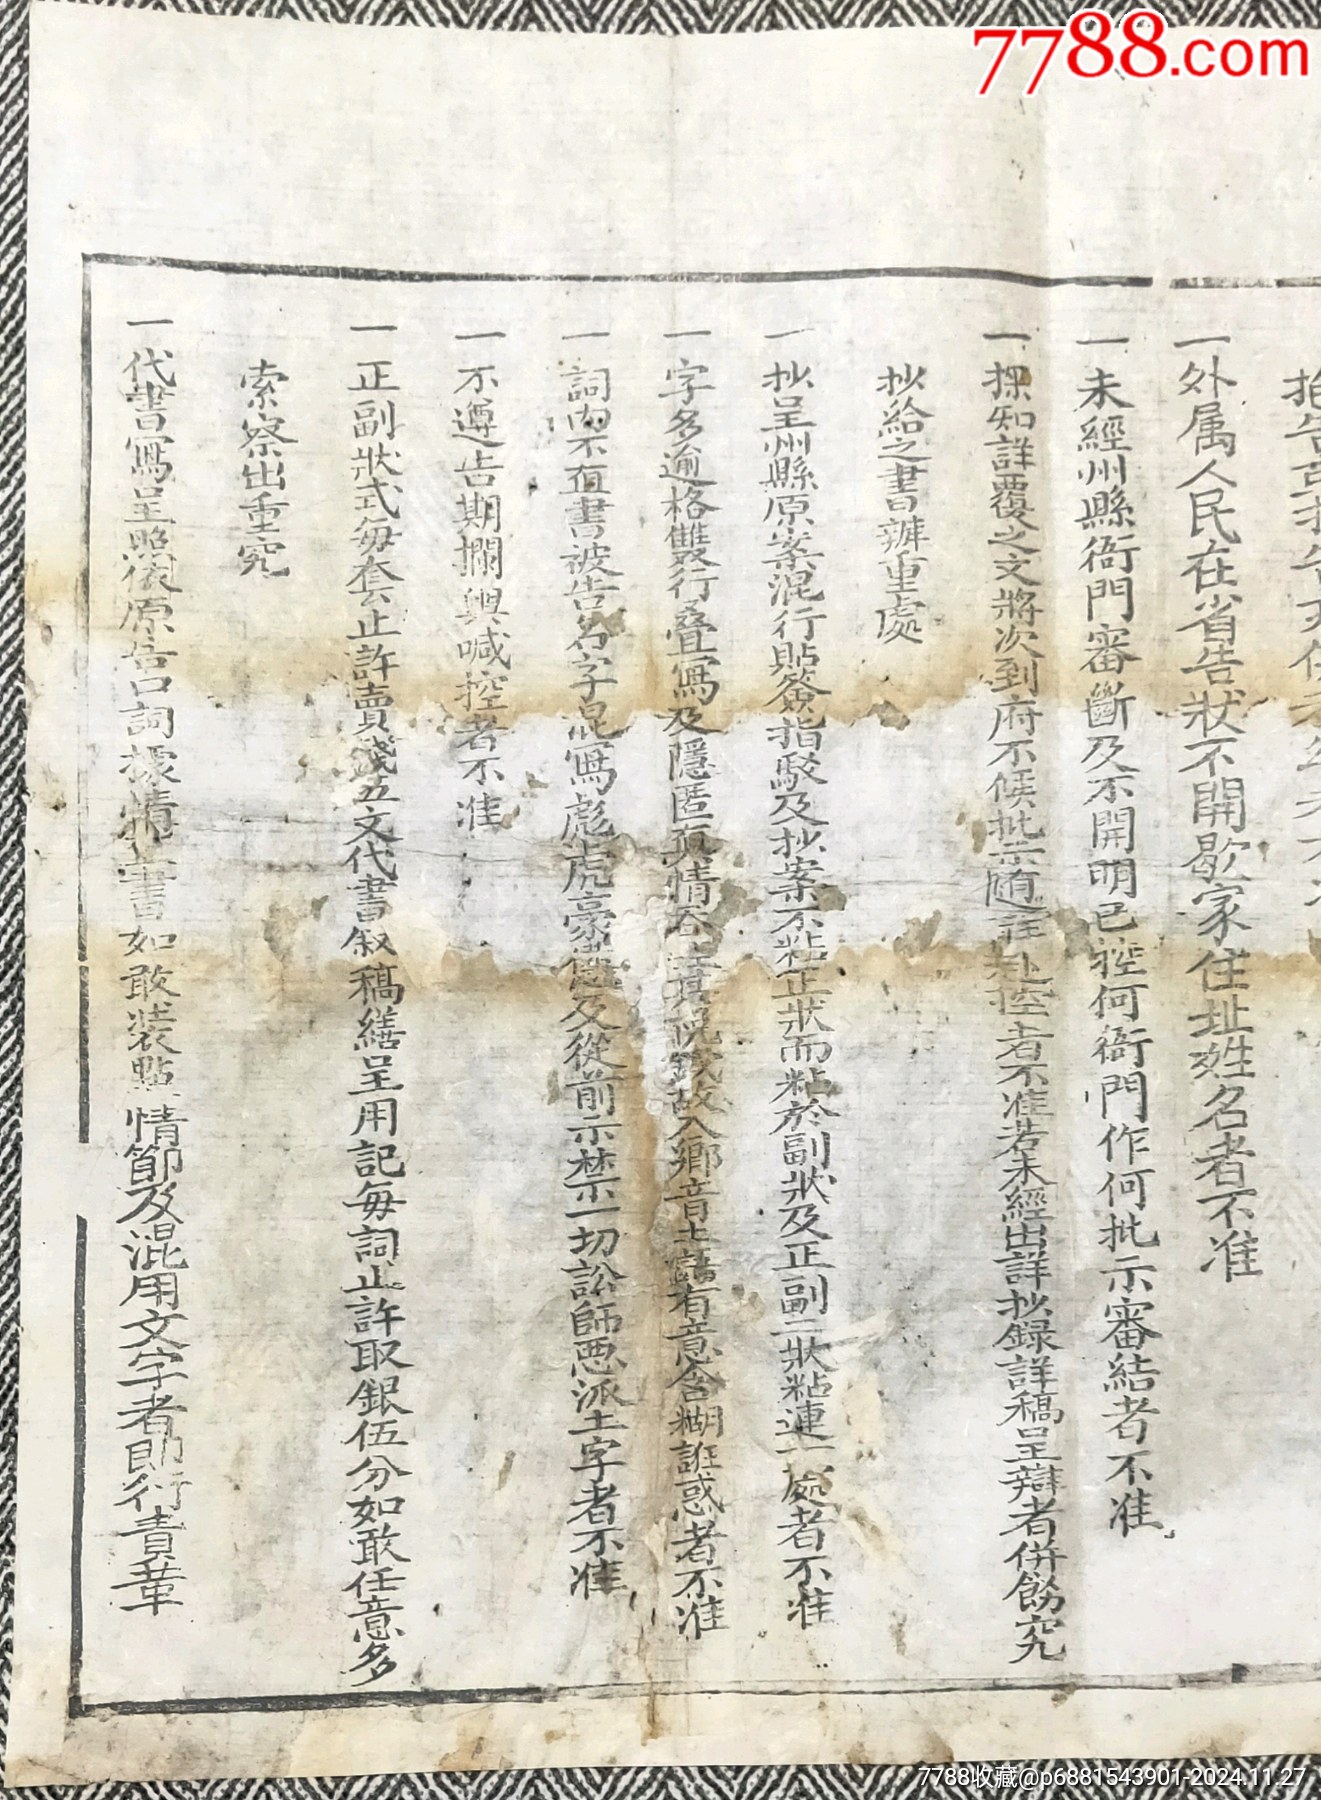 7788.com
一外属人民在省告狀不開歇家住址姓名者不准
一未經州縣衙門審斷及不開明已控何衙門作何批示審結者不准
一探知詳覆之文將次到府不候批示随詳赴控者不准若未經出詳抄録詳稿呈辯者併飭究
抄給之書辦重處
一抄呈州縣原案混行貼簽指駁及抄案不粘正狀而粘於副狀及正副二狀粘連一處者不准
一字多逾格雙行叠寫及隱匿真情 故入鄉音土語有意含糊誑惑者不准
一詞內不直書被告名字混寫彪虎豪 及從前示禁一切訟師惡派土字者不准
一不遵告期攔輿喊控者不准
一正副狀式每套止許賣錢五文代書叙稿繕呈用記每詞止許取銀伍分如敢任意多
索察出重究
一代書寫呈照依原告口詞據情 書如敢装點情節及混用文字者即行責革
7788收藏@p6881543901-2024.11.27